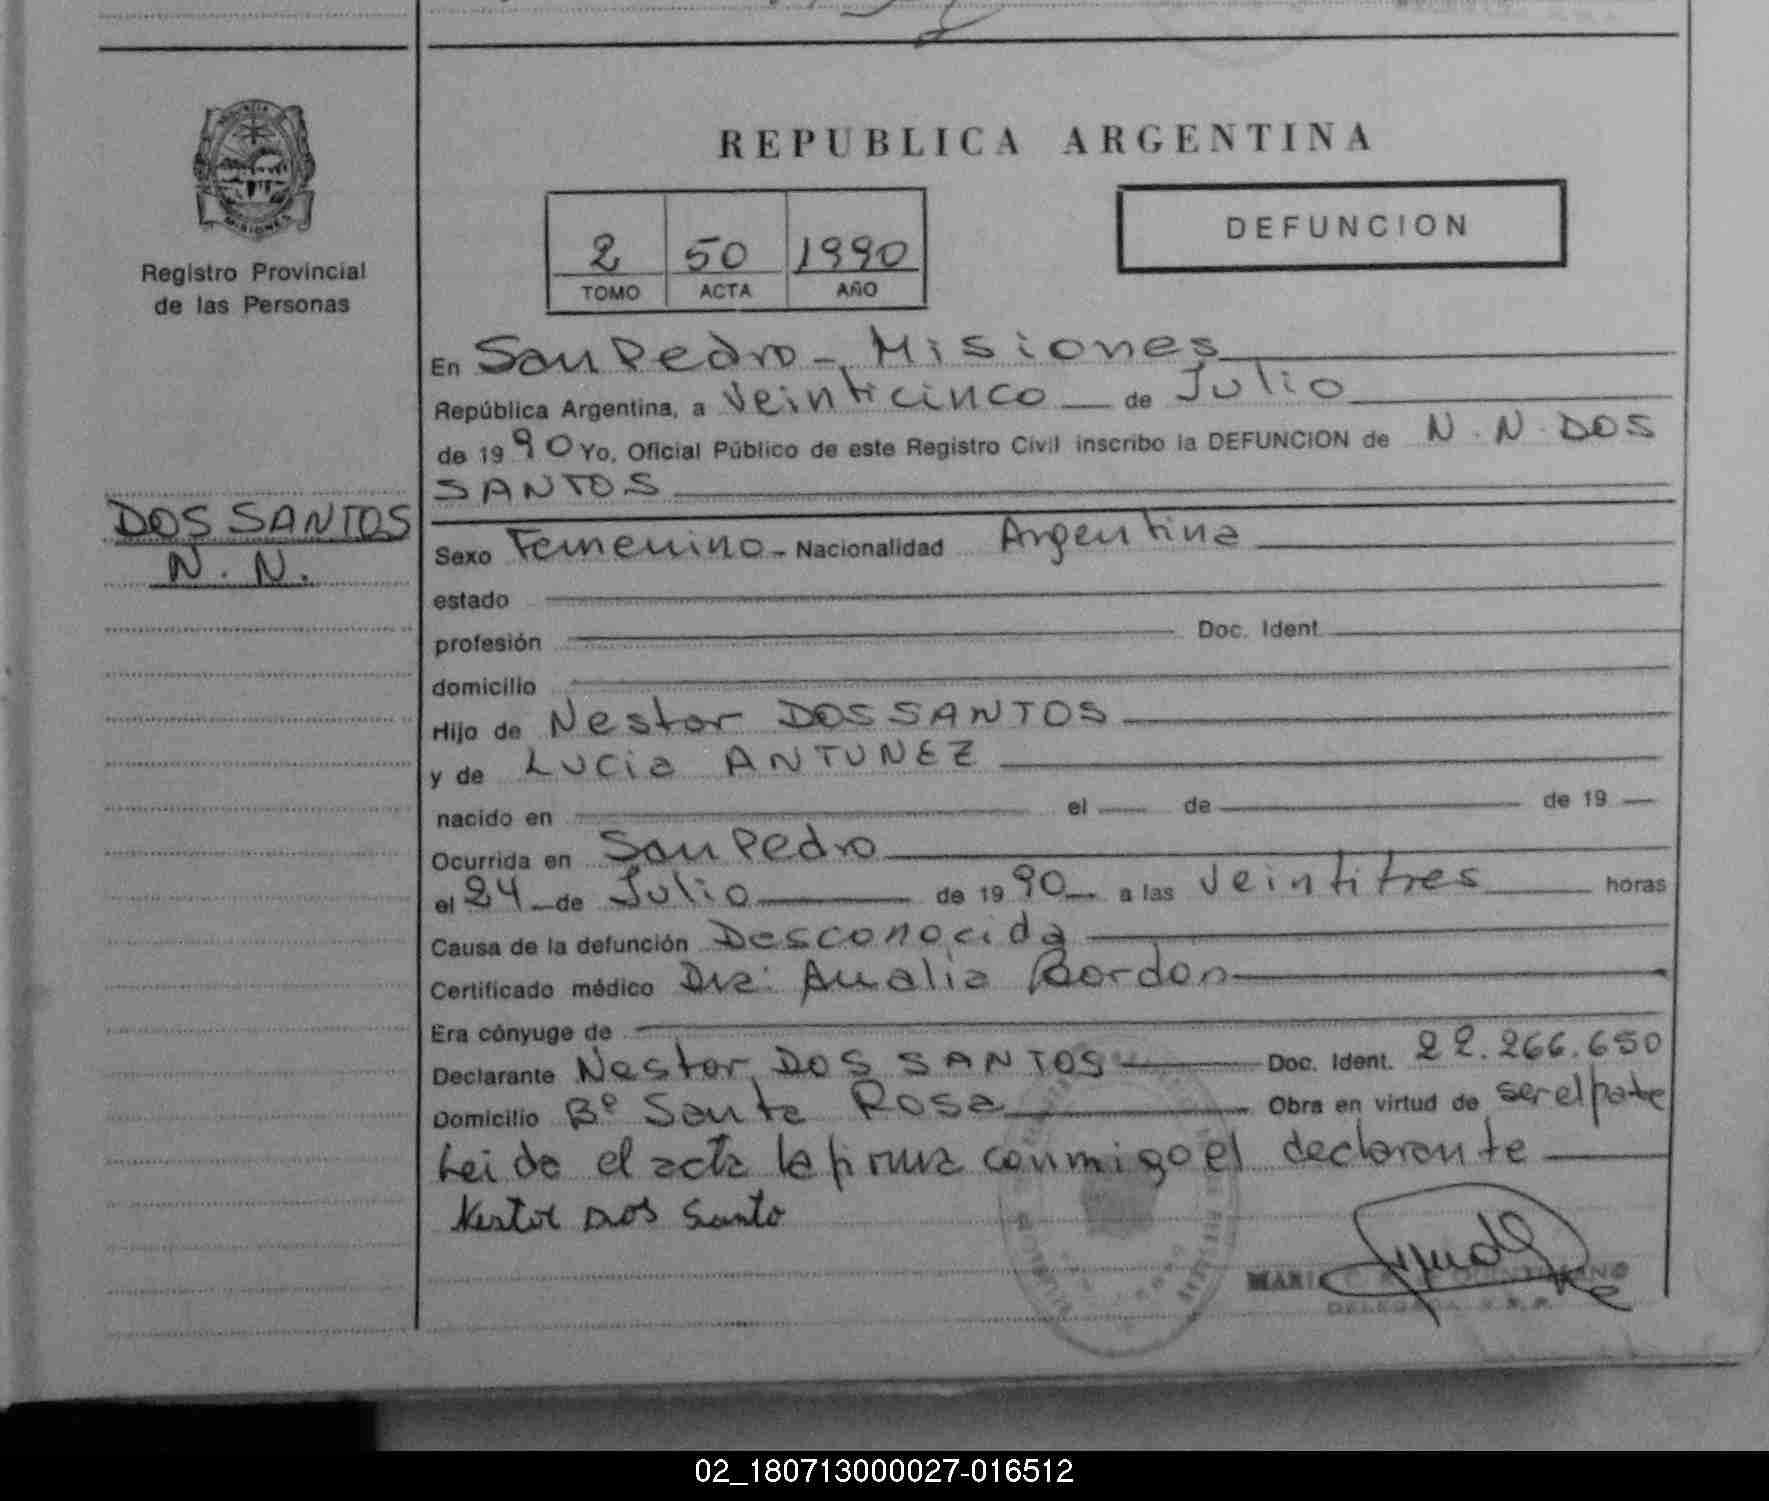 REPUBLICA ARGENTINA
PROVINCIA
MISIONES
Registro Provincial
de las Personas
2 50 1990
TOMO ACTA AÑO
DEFUNCION
En San Pedro - Misiones
República Argentina, a veinticinco de Julio
de 1990 Yo, Oficial Público de este Registro Civil inscribo la DEFUNCION de N. N. DOS
SANTOS
DOS SANTOS
N. N.
Sexo Femenino - Nacionalidad Argentina
estado
profesión Doc. Ident.
domicilio
Hijo de Nestor DOS SANTOS
y de Lucia ANTUNEZ
nacido en el de de 19
Ocurrida en San Pedro
el 24 de Julio de 1990 a las veintitres horas
Causa de la defunción Desconocida
Certificado médico Dra: Analia Bordon
Era cónyuge de
Declarante Nestor DOS SANTOS Doc. Ident. 22.266.650
Domicilio Bº Santa Rosa Obra en virtud de ser el padre
Leida el acta la firma conmigo el declarante
Nestor Dos Santo
DELEGADA R.P.
02_180713000027-016512